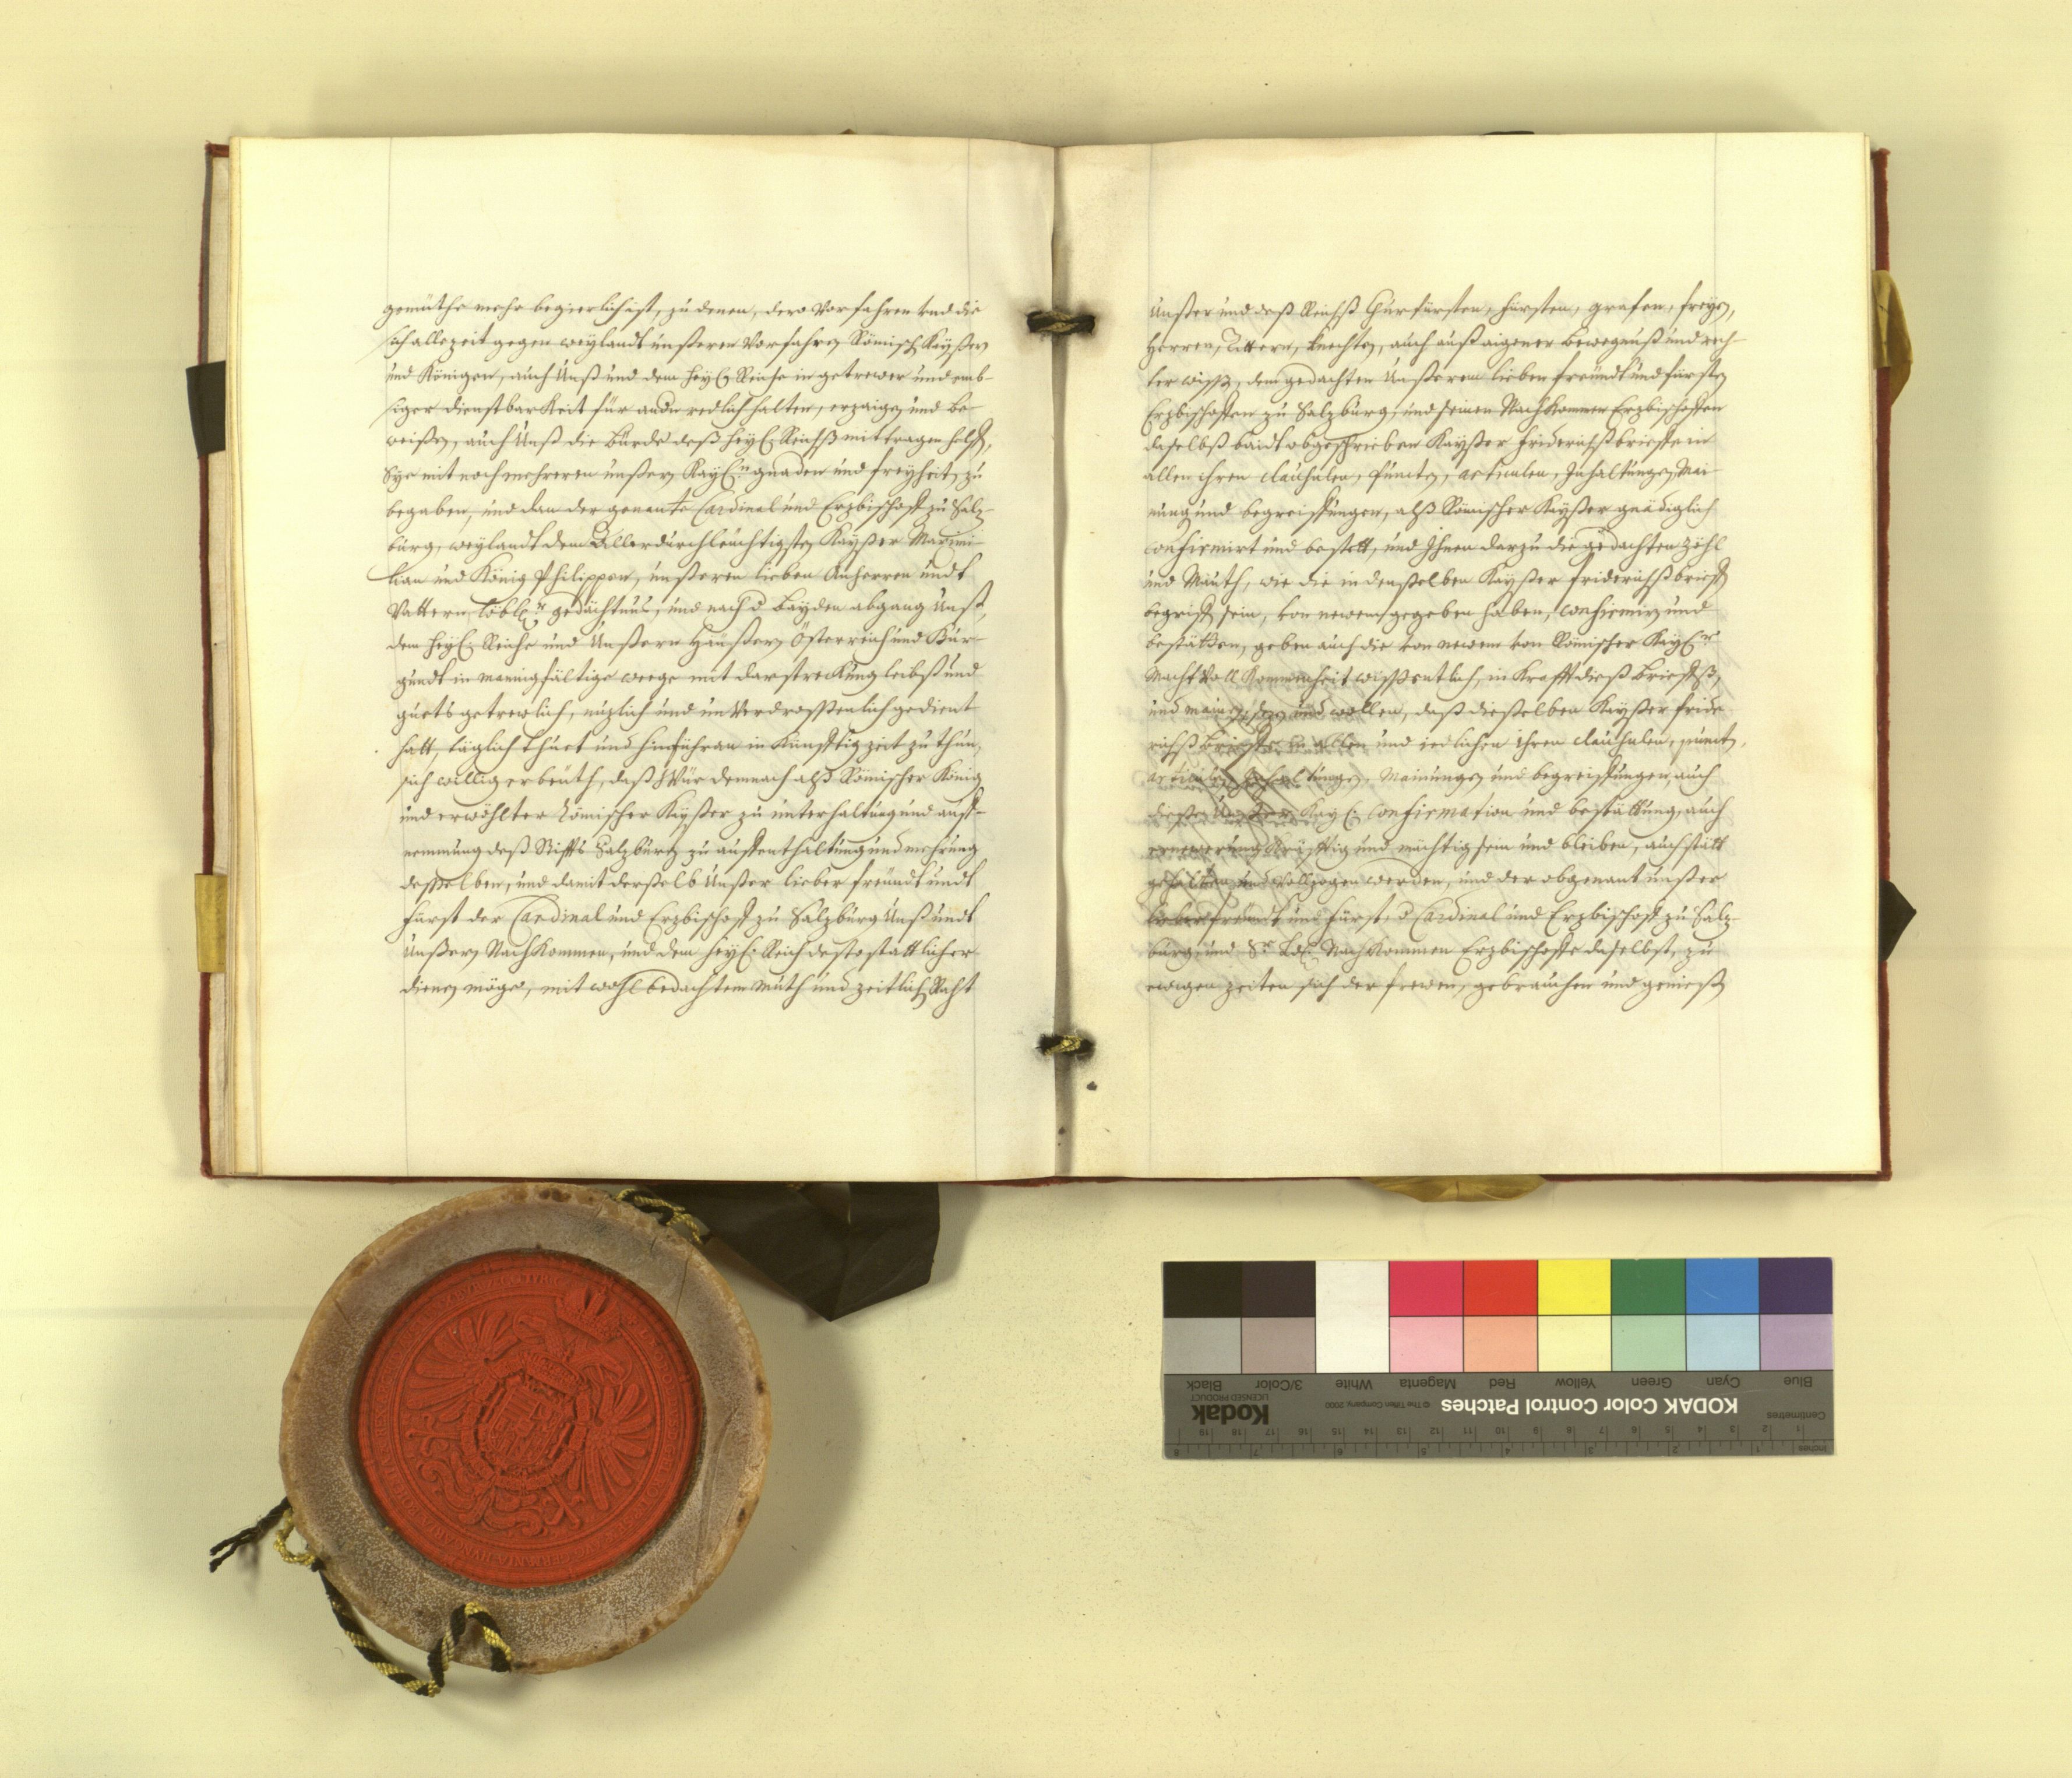 gemüthe mehr begierlich ist, zu denen, dero Vorfahren vnd die
sich allezeit gegen weylandt unßeren Vorfahrn Römisch Kayßern
und Königen, auch Unß und dem Heyl: Reiche in getrewer und emb-
siger dienstbarkeit für andn redlich halten, erzaign und be-
weißn, auch Unß die bürde deß Heyl: Reichß mit tragen helffn,
Sye mit noch mehreren unßern Kayl:n gnaden und freyheitn zu
begaben, und dan der genante Cardinal und Erzbischoff zu Salz-
burg, weylandt dem Allerdurchleuchtigstn Kayßer Maximi-
lian und König Philippen, unßeren lieben Anherren undt
Vattern, löbl:r gedächtnus, und nach d Bayden abgang Unß,
dem Heyl: Reiche und Unßern Haüßern Österreich und Bur-
gundt in mannigfältige weege mit darstreckung leibß und
guets getrewlich, nuzlich und unverdroßenlich gedient
hatt, täglich thuet und hinführan in künfftig zeit zu thun,
sich willig erbeuth, daß Wür demnach alß Römischer König
und erwöhlter Römischer Kayßer zu unterhaltung und auff-
nemmung deß Stiffts Salzburg zu auffenthaltung und mehrung
desselben, und damit derßelb Unßer lieber freundt undt
Fürst der Cardinal und Erzbischoff zu Salzburg Unß undt
Unßern Nachkommen, und dem Heyl: Reich desto stattlicher
dienen möge, mit wohlbedachtem muth und zeitlich Raht
Unßer und deß Reichß Churfürsten, Fürsten, grafen, freyn,
Herren, Rittern, Knechtn, auch auß aigener bewegnuß und rech-
ter wißn, dem gedachten Unßeren lieben freundt und fürstn
Erzbischoffen zu Salzburg, und seinen Nachkommen Erzbischoffen
daselbß baidt obgeschrieben Kayßer Friderichß brieffe in
allen ihren clauhulen, Punctn, articulen, Inhaltungn, Mai-
nung und begreiffungen, alß Römischer Kayßer gnädiglich
confirmirt und bestett, und Ihnen darzu die gedachten Zöhl
und Mauth, wie die in denßelben Kayßer friderichß brieffn
begriffn sein, von newem gegeben haben, confirmirn und
bestätten, geben auch die von newem von Römischer Kayl:r
Macht vollkommenheit wißsentlich, in Krafft dieß brieffß,
und mainen, und wollen, daß dießelben Kayßer fride-
richß brieffe in allen und iedlichen ihren clauhulen, punctn,
articulen, Inhaltungn, Mainungn und begreiffungen, auch
dießer Unßer Kayl: Confirmation und bestättung, auch
ernewerung kräfftig und mächtig sein und bleiben, auch statt
gehalten und vollzogen werden, und der obgenant unßer
lieber freundt und Fürst, d Cardinal und Erzbischoff zu Salz-
burg und Sr Ldn: Nachkommen Erzbischoffe daselbst, zu
ewigen zeiten sich der frewen, gebrauchen und genießn
KODAK Color Control Patches
Kodak
LICENSED PRODUCT
© The Tiffen Company, 2000
Blue Cyan Green Yellow Red Magenta White 3/Color Black
Centimetres
Inches
1 2 3 4 5 6 7 8 9 10 11 12 13 14 15 16 17 18 19